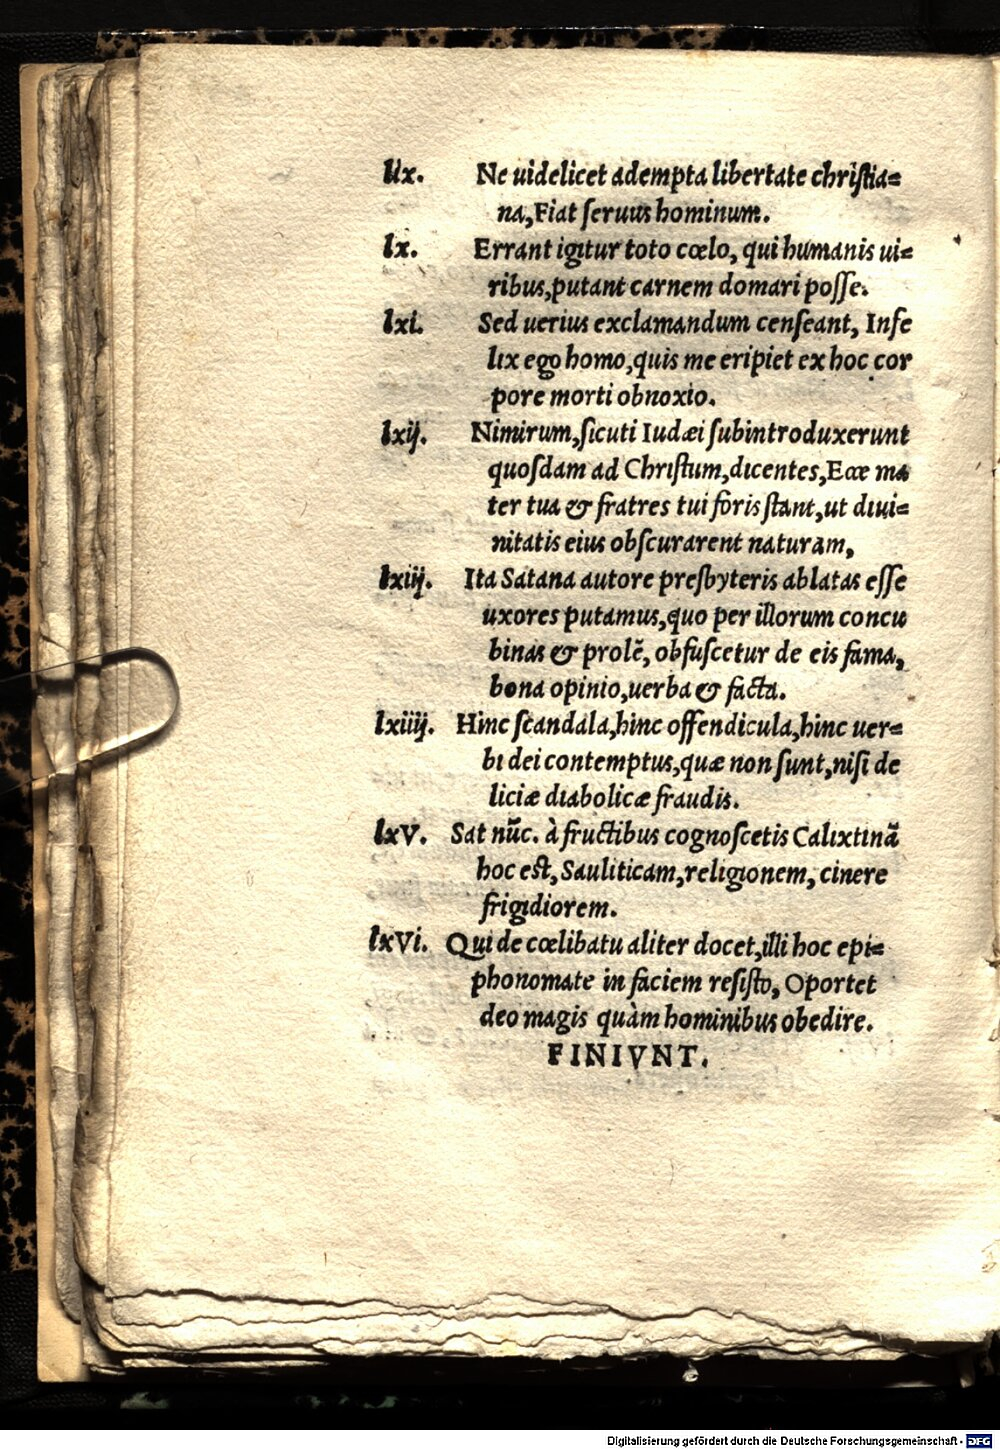 lix. Ne uidelicet adempta libertate christia=
na, Fiat seruus hominum.
lx. Errant igitur toto cœlo, qui humanis ui=
ribus, putant carnem domari posse.
lxi. Sed uerius exclamandum censeant, Infe
lix ego homo, quis me eripiet ex hoc cor
pore morti obnoxio.
lxij. Nimirum, sicuti Iudæi subintroduxerunt
quosdam ad Christum, dicentes, Ecce ma
ter tua & fratres tui foris stant, ut diui=
nitatis eius obscurarent naturam,
lxiij. Ita Satana autore presbyteris ablatas esse
uxores putamus, quo per illorum concu
binas & prolẽ, obfuscetur de eis fama,
bona opinio, uerba & facta.
lxiiij. Hinc scandala, hinc offendicula, hinc uer=
bi dei contemptus, quæ non sunt, nisi de
liciæ diabolicæ fraudis.
lxV. Sat nũc. à fructibus cognoscetis Calixtinã
hoc est, Sauliticam, religionem, cinere
frigidiorem.
lxVi. Qui de cœlibatu aliter docet, illi hoc epi=
phonomate in faciem resisto, Oportet
deo magis quàm hominibus obedire.
FINIVNT.
Digitalisierung gefördert durch die Deutsche Forschungsgemeinschaft - DFG